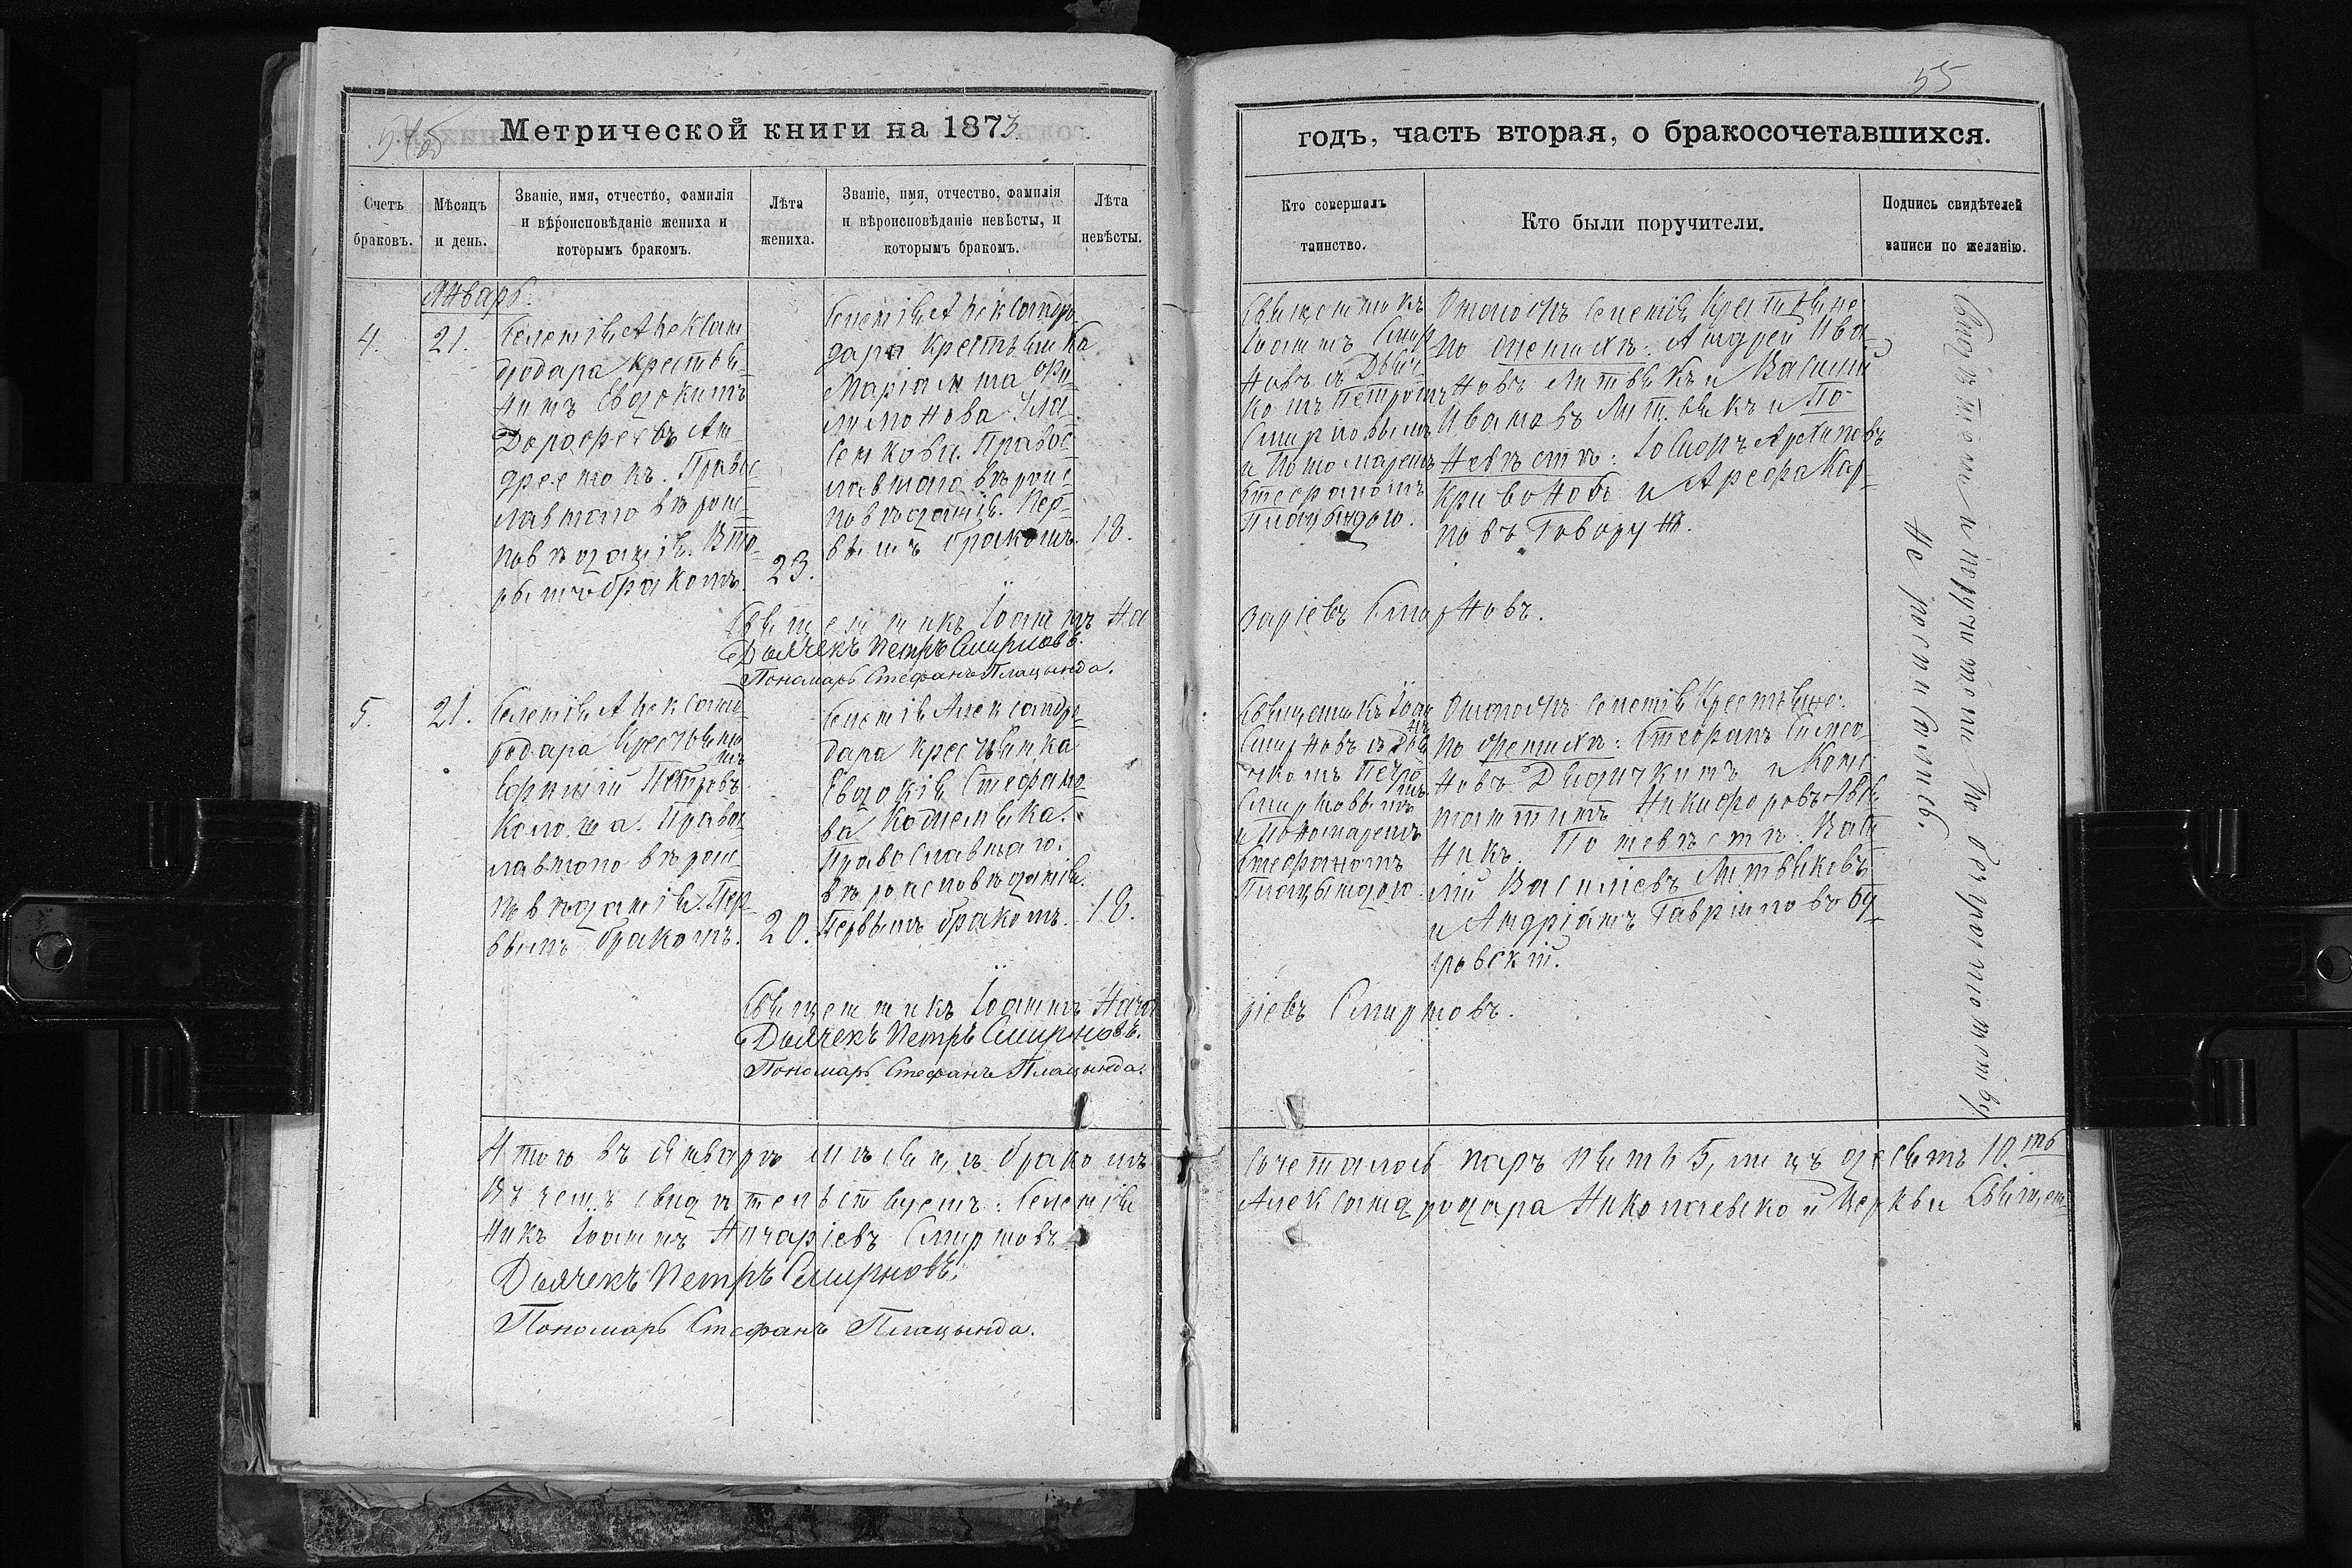 55
Метрической книги на 1873
годъ, часть вторая, о бракосочетавшихся.
Счетъ браковъ.
Мѣсяцъ и день.
Званіе, имя, отчество, фамилія
и вѣроисповѣданіе жениха и
которымъ бракомъ.
Лѣта
жениха.
Званіе, имя, отчество, фамилія
и вѣроисповѣданіе невѣсты, и
которымъ бракомъ.
Лѣта
невѣсты.
Кто совершалъ
таинство.
Кто были поручители.
Подпись свидѣтелей
записи по желанію.
Январь.
4.
21.
Селенія Алексан
дродара крестья-
нинъ Евдокимъ
Дорофеевъ Ан-
дреенокъ. Правос
лавнаго вѣроис-
повѣданія. Вто-
рымъ бракомъ.
23.
Селенія Александро
дара крестьянка
Маріамна Фи-
лимонова
Православ
лавнаго вѣроис
повѣданія. Пер-
вымъ бракомъ.
18.
Священникъ
Іоаннъ Смир
новъ съ Дьяч
комъ Петромъ
Смирновымъ
и Пономаремъ
Стефаномъ
Плацындою.
селенія Крестьяне
по женихѣ: Андрей Ива-
новъ Литвякъ и Василій
Ивановъ Литвякъ и По
невѣстѣ: Архиповъ
Кривоносъ и Кар-
повъ Говорун.
Священникъ Іоаннъ На
заріевъ Смирновъ.
Дьячекъ Петръ Смирновъ.
Пономарь Стефанъ Плацында.
5.
21.
Селенія Александ-
родара Крестьяни
нъ
Ефимій Петровъ
Правос
лавнаго вѣроис
повѣданія. Пер-
вымъ бракомъ.
20.
Селенія Александро
дара крестьянка
Евдокія Стефано-
ва
Православнаго
вѣроисповѣданія.
Первымъ бракомъ.
18.
Священникъ Іоан
нъ
Смирновъ съ Дья
чкомъ Петро
мъ
Смирновымъ
и Пономаремъ
Стефаномъ
Плацындою.
селенія Крестьяне:
по женихѣ: Стефанъ Симео-
новъ и Конс
тантинъ Никифоровъ
По невѣстѣ: Васи
лій Василіевъ Литвяковъ
и Андріанъ Гавриловъ
Священникъ Іоаннъ Наза
ріевъ Смирновъ.
Дьячекъ Петръ Смирновъ.
Пономарь Стефанъ Плацында.
не росписались.
Итого въ Январѣ мѣсяцѣ бракомъ
сочеталось паръ пять 5, лицъ десять 10.ть
Въ чемъ свидѣтельствуемъ: селенія
Александродара Николаевской Церкви Священ
никъ Іоаннъ Назаріевъ Смирновъ
Дьячекъ Петръ Смирновъ.
Пономарь Стефанъ Плацында.